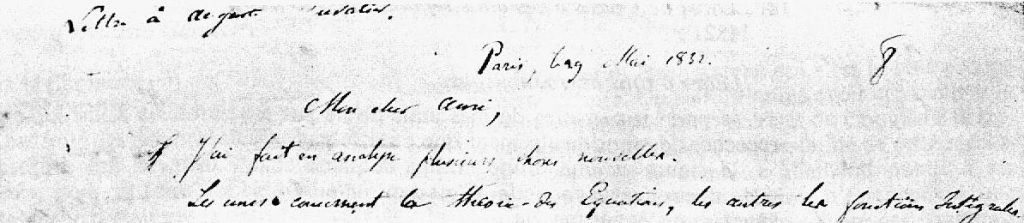 Lettre à Auguste Chevalier.
Paris, le 29 Mai 1832.
Mon cher Ami,
J'ai fait en analyse plusieurs choses nouvelles.
Les unes concernent la théorie des Equations, les autres les fonctions Intégrales